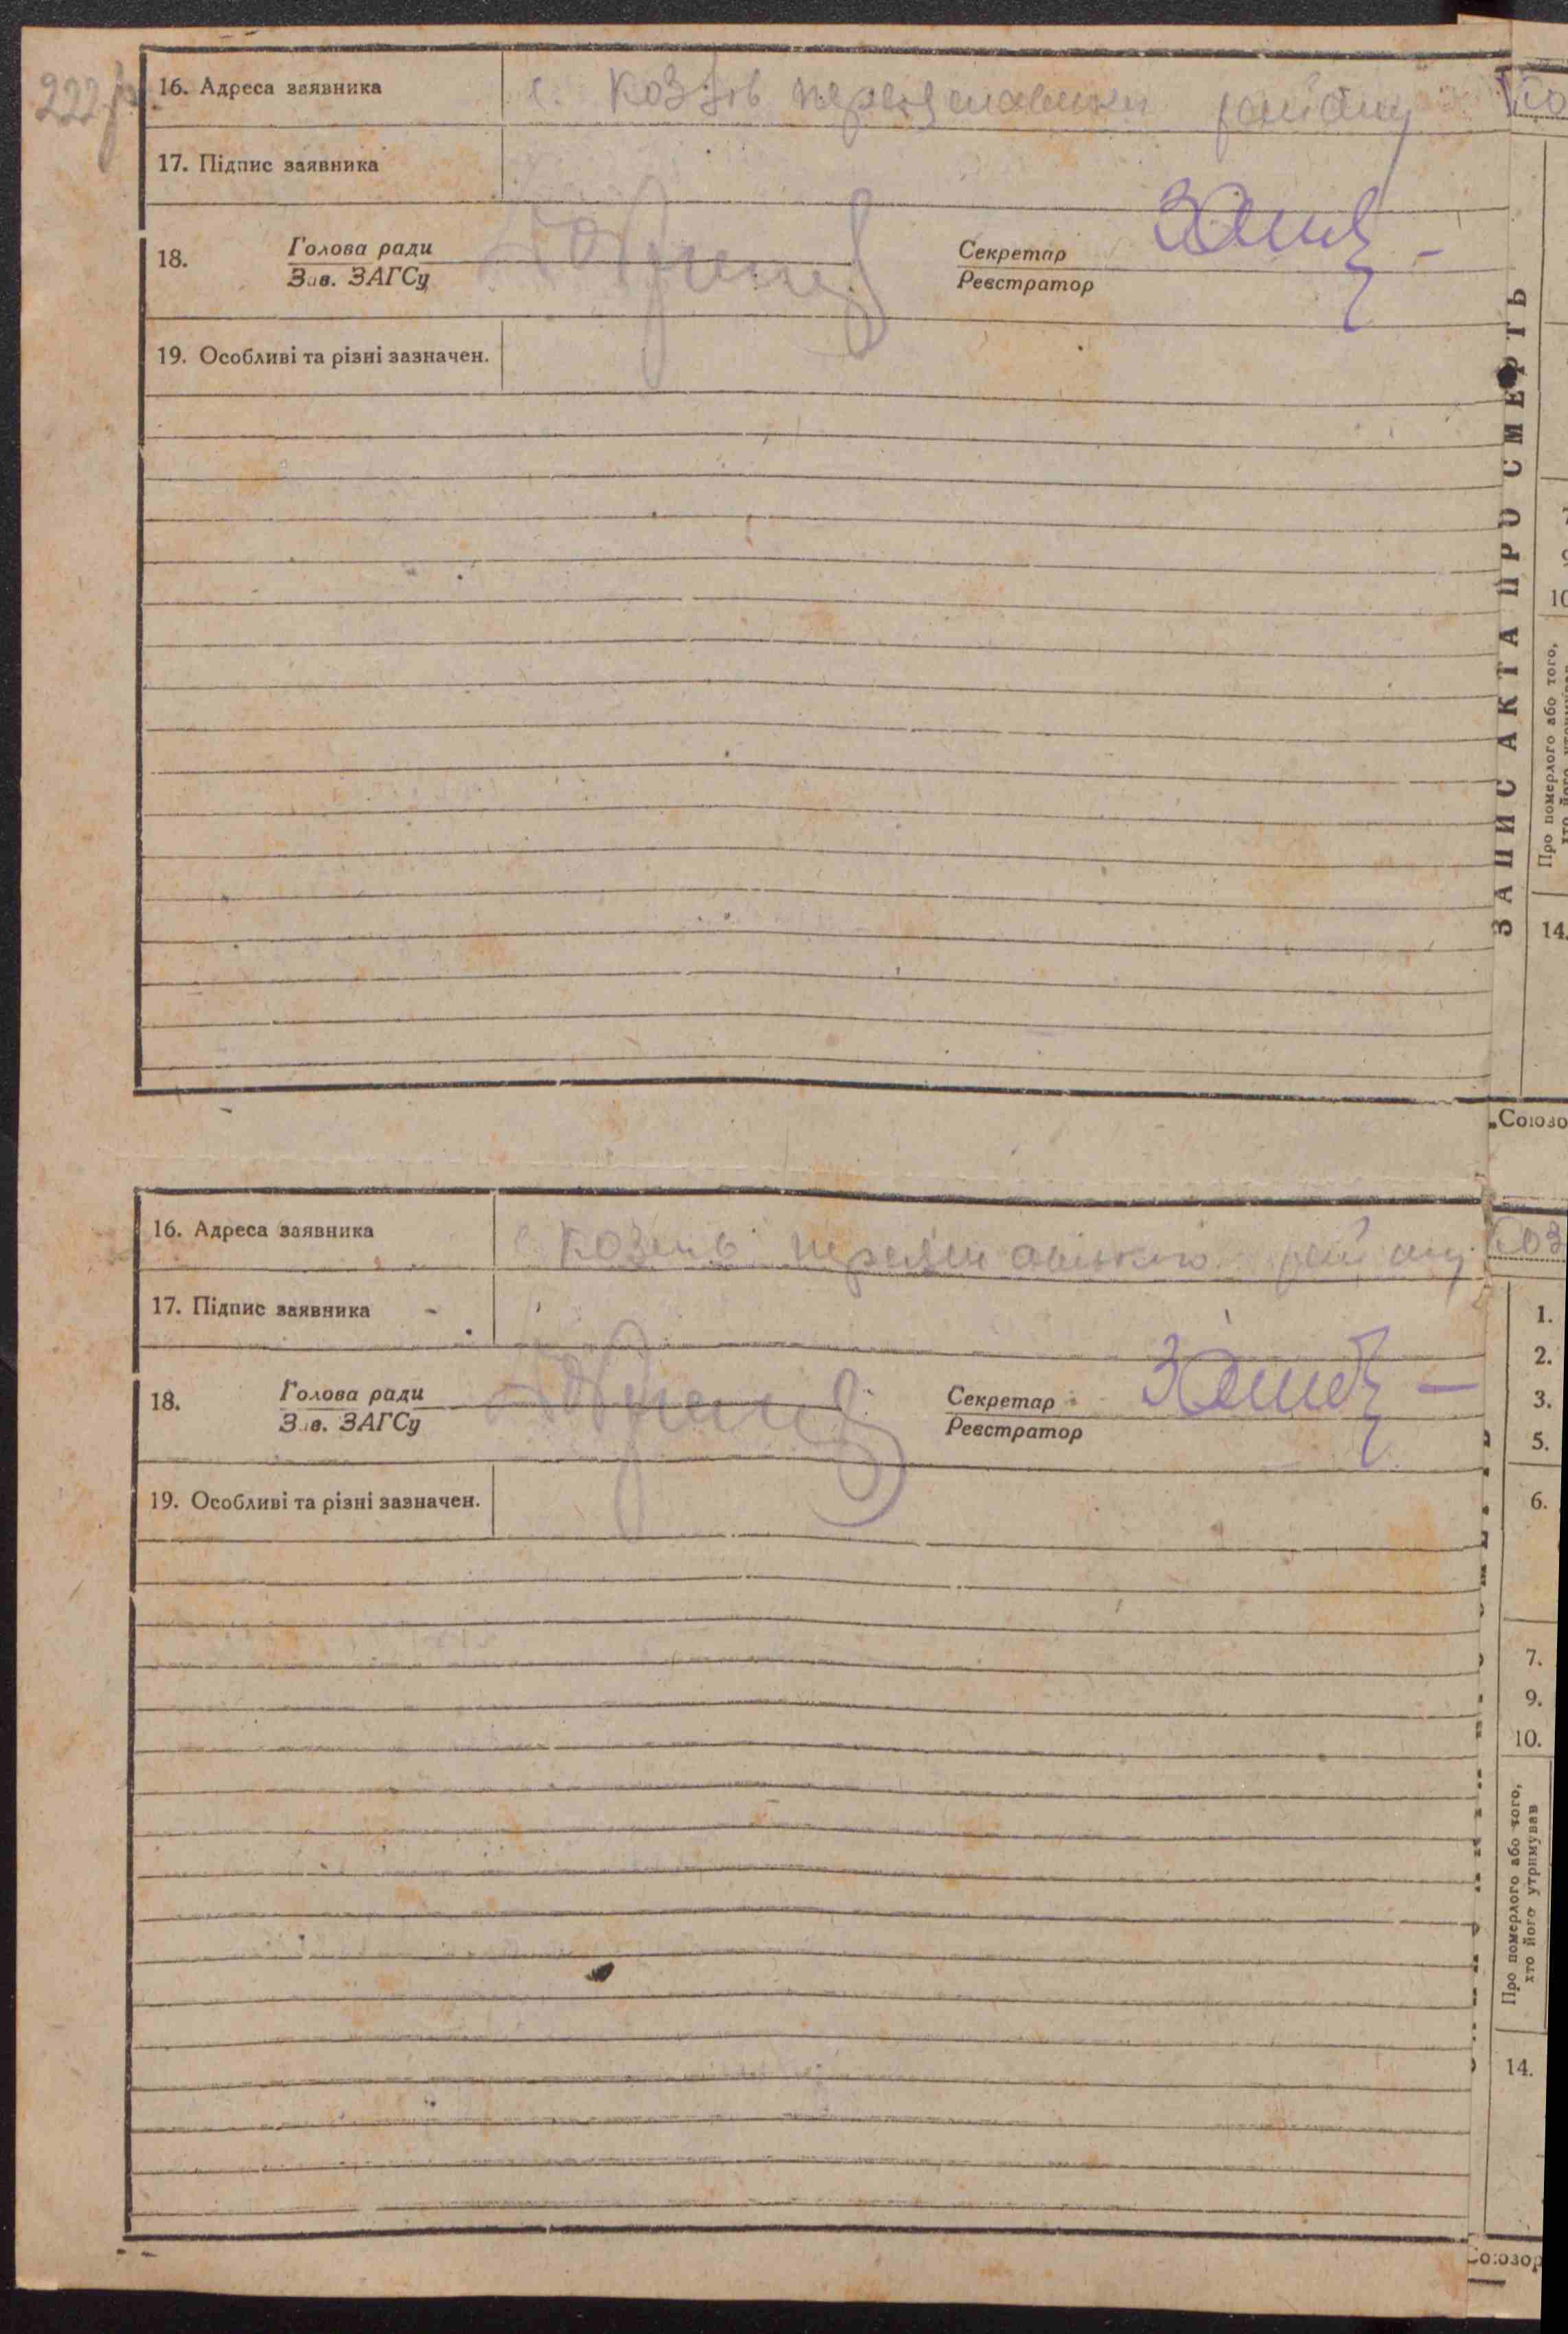 222
16. Адреса заявника с. Козлів переяславськ району
17. Підпис заявника
18. Голова ради Секретар
Зав. ЗАГСу Реєстратор
19. Особливі та різні зазначен.
ЗАПИС АКТА ПРО СМЕРТЬ
10
Про померлого або того,
14.
„Союзо
16. Адреса заявника с Козлів переяславського району
17. Підпис заявника
18. Голова ради Секретар
Зав. ЗАГСу Реєстратор
19. Особливі та різні зазначен.
Коз
1.
2.
3.
5.
6.
7.
9.
10.
Про померлого або того,
хто його утримував
14.
Союзор